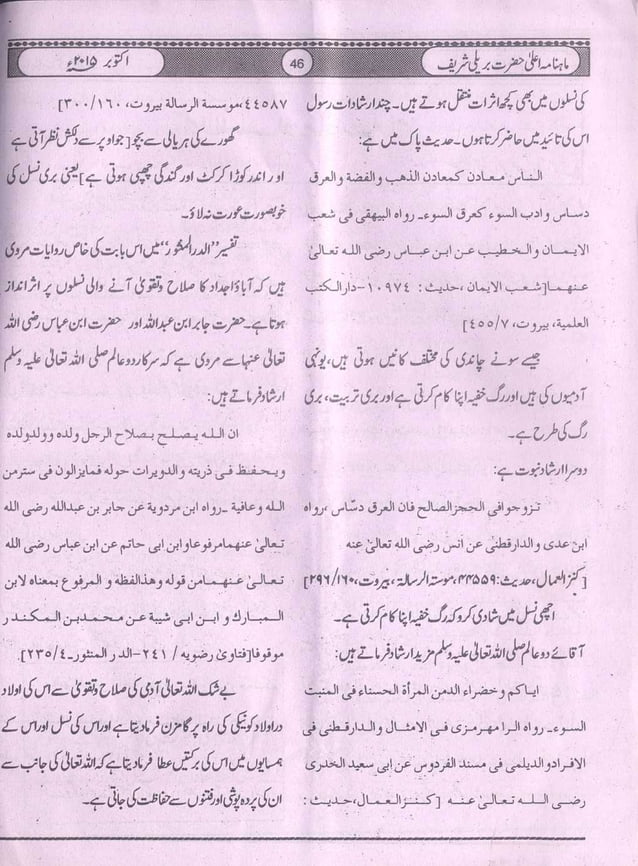 ماہنامہ اعلیٰ حضرت بریلی شریف
46
اکتوبر ۲۰۱۵ء
کی نسلوں میں بھی کچھ اثرات منتقل ہوتے ہیں۔ چند ارشادات رسول
اس کی تائید میں حاضر کرتا ہوں۔ حدیث پاک میں ہے:
الناس معادن کمعادن الذهب والفضة والعرق
دساس وادب السوء کعرق السوء۔ رواه البیهقی فی شعب
الایمان والخطیب عن ابن عباس رضی الله تعالیٰ
عنهما[شعب الایمان ،حدیث : ۱۰۹۷۴-دارالکتب
العلمیة، بیروت، ۴۵۵/۷]
جیسے سونے چاندی کی مختلف کانیں ہوتی ہیں، یونہی
آدمیوں کی ہیں اور رگ خفیہ اپنا کام کرتی ہے اور بری تربیت، بری
رگ کی طرح ہے۔
دوسرا ارشاد نبوت ہے:
تزوجوا فی الحجز الصالح فان العرق دسّاس ،رواه
ابن عدی والدارقطنی عن أنس رضی الله تعالیٰ عنه
[کنز العمال، حدیث: ۴۴۵۵۹، موسۃ الرسالۃ، بیروت، ۲۹۶/۱۶۰]
اچھی نسل میں شادی کرو کہ رگ خفیہ اپنا کام کرتی ہے۔
آقائے دوعالم صلی اللہ تعالیٰ علیہ وسلم مزید ارشاد فرماتے ہیں:
ایاکم و خضراء الدمن المرأة الحسناء فی المنبت
السوء۔ رواه الرا مهرمزی فی الامثال والدارقطنی فی
الافرادو الدیلمی فی مسند الفردوس عن ابی سعید الخدری
رضی الله تعالیٰ عنه [کنزالعمال، حدیث :
۴۴۵۸۷،موسسة الرسالة بیروت، ۳۰۰/۱۶۰]
گھورے کی ہریالی سے بچو[جو اوپر سے دلکش نظر آتی ہے
اور اندر کوڑا کرکٹ اور گندگی چھپی ہوتی ہے]یعنی بری نسل کی
خوبصورت عورت نہ لاؤ۔
تفسیر ”الدر المنثور“ میں اس بابت کی خاص روایات مروی
ہیں کہ آباؤ اجداد کا صلاح و تقویٰ آنے والی نسلوں پر اثر انداز
ہوتا ہے۔ حضرت جابر ابن عبداللہ اور حضرت ابن عباس رضی اللہ
تعالیٰ عنہما سے مروی ہے کہ سرکار دوعالم صلی اللہ تعالیٰ علیہ وسلم
ارشاد فرماتے ہیں:
ان الله یصلح بصلاح الرجل ولده وولدولده
ویحفظ فی ذریته والدویرات حوله فمایزالون فی سترمن
الله وعافیة ۔رواه ابن مردویة عن جابر بن عبدالله رضی الله
تعالیٰ عنهمامرفوعاوابن ابی حاتم عن ابن عباس رضی الله
تعالیٰ عنهمامن قوله وهذالفظه و المرفوع بمعناه لابن
المبارک و ابن ابی شیبة عن محمدبن المکندر
موقوفا[فتاویٰ رضویه / ۲۴۱-الدر المنثور۔۲۳۵/۴]
بے شک اللہ تعالیٰ آدمی کی صلاح و تقویٰ سے اس کی اولاد
در اولاد کو نیکی کی راہ پر گامزن فرمادیتا ہے اور اس کی نسل اور اس کے
ہمسایوں میں اس کی برکتیں عطا فرمادیتا ہے کہ اللہ تعالیٰ کی جانب سے
ان کی پردہ پوشی اور فتنوں سے حفاظت کی جاتی ہے۔